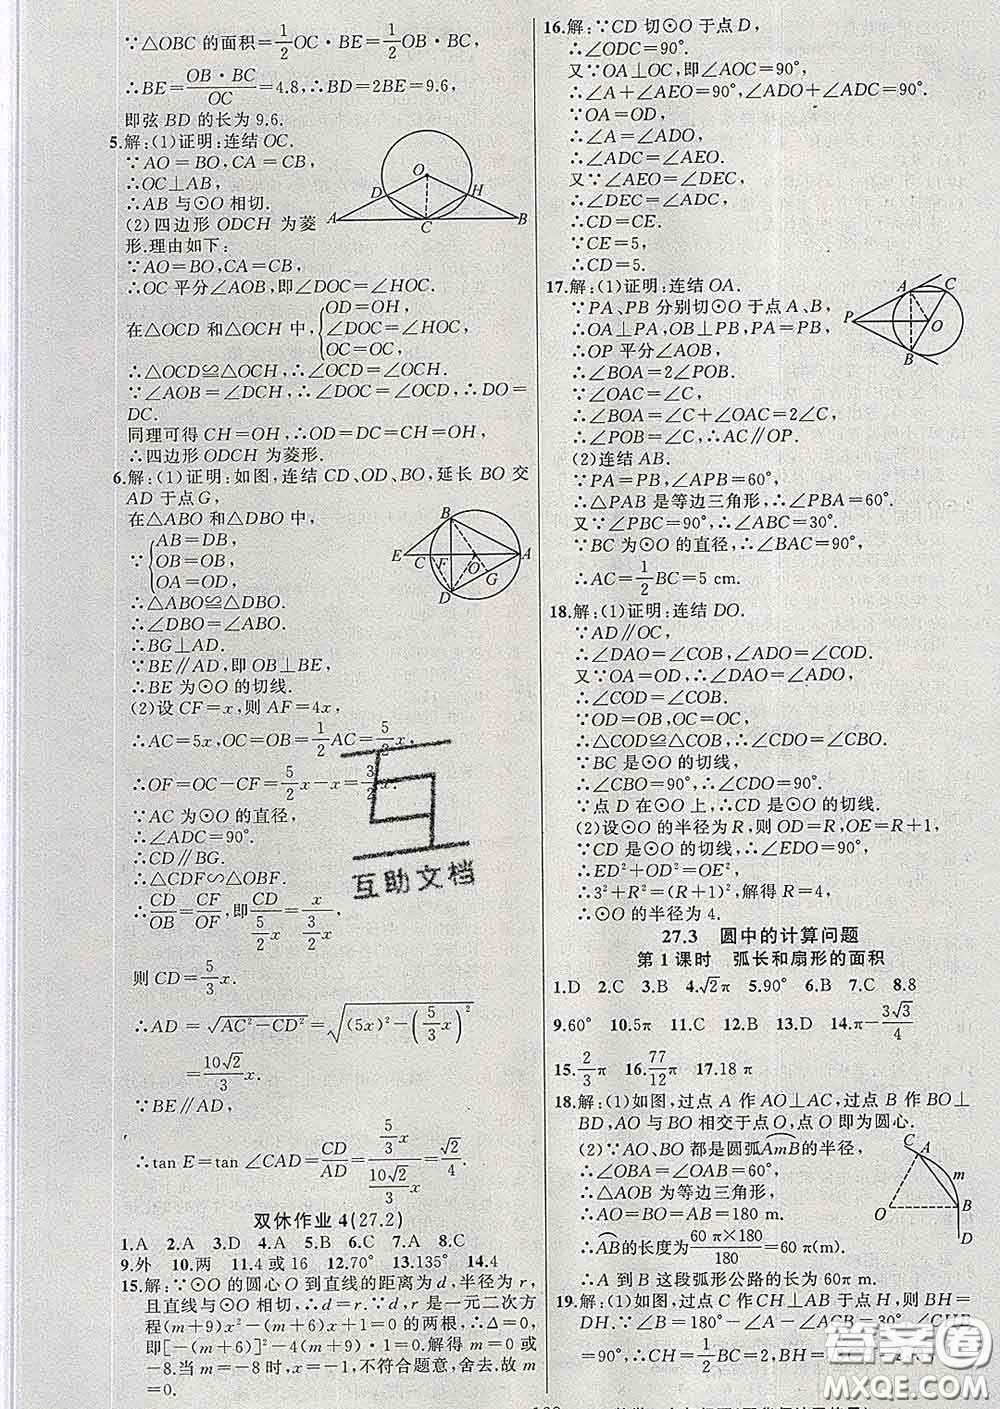 ∵△OBC 的面积=1/2 OC·BE=1/2 OB·BC,
∴BE=OB·BC/OC=4.8,∴BD=2BE=9.6,
即弦 BD 的长为 9.6.
5.解:(1)证明:连结 OC.
∵AO=BO,CA=CB,
∴OC⊥AB,
∴AB 与⊙O 相切.
(2)四边形 ODCH 为菱
形.理由如下:
∵AO=BO,CA=CB,
∴OC 平分∠AOB,即∠DOC=∠HOC.
在△OCD 和△OCH 中,{OD=OH,
∠DOC=∠HOC,
OC=OC,
∴△OCD≌△OCH,∴∠OCD=∠OCH.
∵∠AOB=∠DCH,∴∠DOC=∠OCD,∴DO=
DC.
同理可得 CH=OH,∴OD=DC=CH=OH,
∴四边形 ODCH 为菱形.
O
D
H
A
C
B
6.解:(1)证明:如图,连结 CD、OD、BO,延长 BO 交
AD 于点 G,
在△ABO 和△DBO 中,
∵{AB=DB,
OB=OB,
OA=OD,
∴△ABO≌△DBO.
∴∠DBO=∠ABO.
∴BG⊥AD.
∵BE∥AD,即 OB⊥BE,
∴BE 为⊙O 的切线.
(2)设 CF=x,则 AF=4x,
∴AC=5x,OC=OB=1/2 AC=5/2 x,
∴OF=OC-CF=5/2 x-x=3/2 x.
∵AC 为⊙O 的直径,
∴∠ADC=90°.
∴CD∥BG.
∴△CDF∽△OBF.
∴CD/OB=CF/OF,即 CD/(5/2 x)=x/(3/2 x),
则 CD=5/3 x.
∴AD=√(AC²-CD²)=√((5x)²-(5/3 x)²)
=10√2/3 x.
∵BE∥AD,
∴tan E=tan ∠CAD=CD/AD=(5/3 x)/(10√2/3 x)=√2/4.
B
E
C
F
O
A
G
D
双休作业 4(27.2)
1.A 2.A 3.D 4.A 5.B 6.C 7.A 8.C
9.外 10.两 11.4 或 16 12.70° 13.135° 14.4
15.解:∵⊙O 的圆心 O 到直线的距离为 d,半径为 r,
且直线与⊙O 相切,∴d=r.∵d、r 是一元二次方
程(m+9)x²-(m+6)x+1=0 的两根,∴Δ=0,
即[-(m+6)]²-4(m+9)·1=0.解得 m=0 或
-8.当 m=-8 时,x=-1,不符合题意,舍去.故 m
=0.
16.解:∵CD 切⊙O 于点 D,
∴∠ODC=90°.
又∵OA⊥OC,即∠AOC=90°,
∴∠A+∠AEO=90°,∠ADO+∠ADC=90°.
∵OA=OD,
∴∠A=∠ADO,
∴∠ADC=∠AEO.
又∵∠AEO=∠DEC,
∴∠DEC=∠ADC,
∴CD=CE.
∵CE=5,
∴CD=5.
17.解:(1)证明:连结 OA.
∵PA、PB 分别切⊙O 于点 A、B,
∴OA⊥PA,OB⊥PB,PA=PB,
∴OP 平分∠AOB.
∴∠BOA=2∠POB.
∵∠OAC=∠C,
∴∠BOA=∠C+∠OAC=2∠C.
∴∠POB=∠C,∴AC∥OP.
(2)连结 AB.
∵PA=PB,∠APB=60°,
∴△PAB 是等边三角形,∴∠PBA=60°.
又∵∠PBC=90°,∴∠ABC=30°.
∵BC 为⊙O 的直径,∴∠BAC=90°,
∴AC=1/2 BC=5 cm.
A
C
P
O
B
18.解:(1)证明:连结 DO.
∵AD∥OC,
∴∠DAO=∠COB,∠ADO=∠COD.
又∵OA=OD,∴∠DAO=∠ADO,
∴∠COD=∠COB.
∵OD=OB,OC=OC,
∴△COD≌△COB,∴∠CDO=∠CBO.
∵BC 是⊙O 的切线,
∴∠CBO=90°,∴∠CDO=90°.
∵点 D 在⊙O 上,∴CD 是⊙O 的切线.
(2)设⊙O 的半径为 R,则 OD=R,OE=R+1,
∵CD 是⊙O 的切线,∴∠EDO=90°.
∴ED²+OD²=OE²,
∴3²+R²=(R+1)²,解得 R=4,
∴⊙O 的半径为 4.
27.3 圆中的计算问题
第 1 课时 弧长和扇形的面积
1.D 2.C 3.B 4.√2π 5.90° 6.B 7.C 8.8
9.60° 10.5π 11.C 12.B 13.D 14.π-3√3/4
15.2/3 π 16.77/12 π 17.18 π
18.解:(1)如图,过点 A 作 AO⊥AC,过点 B 作 BO⊥
BD,AO 与 BO 相交于点 O,点 O 即为圆心.
(2)∵AO、BO 都是圆弧AmB的半径,
∴∠OBA=∠OAB=60°,
∴△AOB 为等边三角形,
∴AO=BO=AB=180 m.
∴AB的长度为60 π×180/180=60 π(m).
∴A 到 B 这段弧形公路的长为 60π m.
C
A
m
O
B
D
19.解:(1)如图,过点 C 作 CH⊥AB 于点 H,则 BH=
DH.∵∠B=180°-∠A-∠ACB=30°,∠CHB
=90°,∴CH=1/2 BC=2,BH=
互助文档
答案圈
MXQE.COM